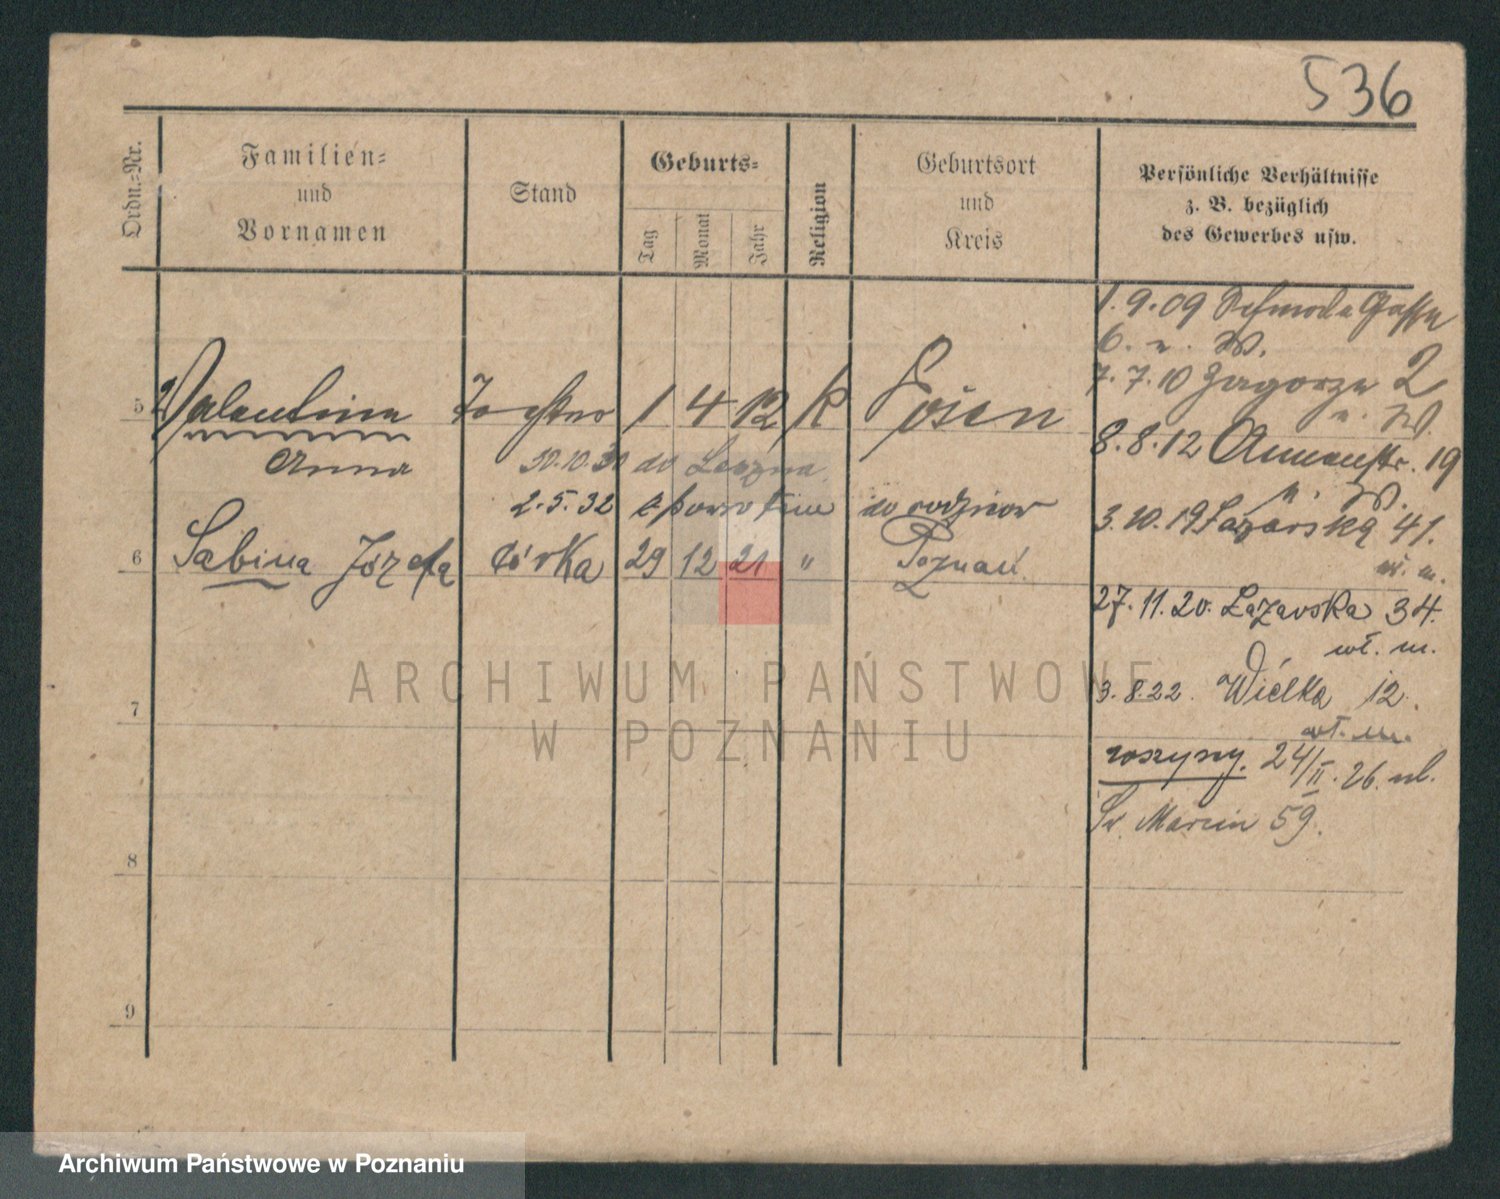 536
Ordn.=Nr.
Familien=
und
Vornamen
Stand
Geburts=
Tag
Monat
Jahr
Religion
Geburtsort
und
Kreis
Persönliche Verhältnisse
z. B. bezüglich
des Gewerbes usw.
5 Valentina Tochter 1 4 12 K Posen
Anna
30.10.30 do Leszna
2.5.32 z powrotem do rodziców
6 Sabina Józefa córka 29 12 21 " Poznań
7
8
9
1.9.09
6. n. W.
7.7.10 Zagorze 2
n. W.
8.8.12 Annenstr. 19
n. W.
3.10.19 Łazarska 41.
w. m.
27.11.20. Łazarska 34.
wł. m.
3.8.22. Wielka 12.
wł. m.
24/II.26. ul.
Św. Marcin 59.
ARCHIWUM PAŃSTWOWE
W POZNANIU
Archiwum Państwowe w Poznaniu